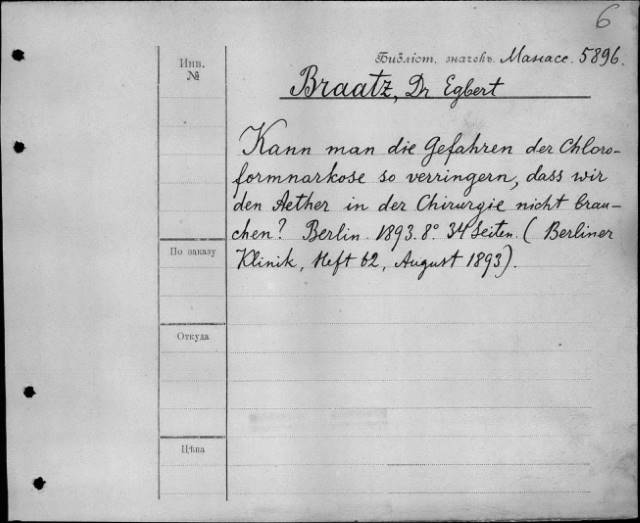 6
Библіот. значокъ Манасс. 5896.
Инв.
№
Braatz, Dr Egbert
Kann man die Gefahren der Chloro-
formnarkose so verringern, dass wir
den Aether in der Chirurgie nicht brau-
chen? Berlin. 1893. 8° 34 Seiten. (Berliner
По заказу
Klinik, Heft 62, August 1893).
Откуда
Цѣна